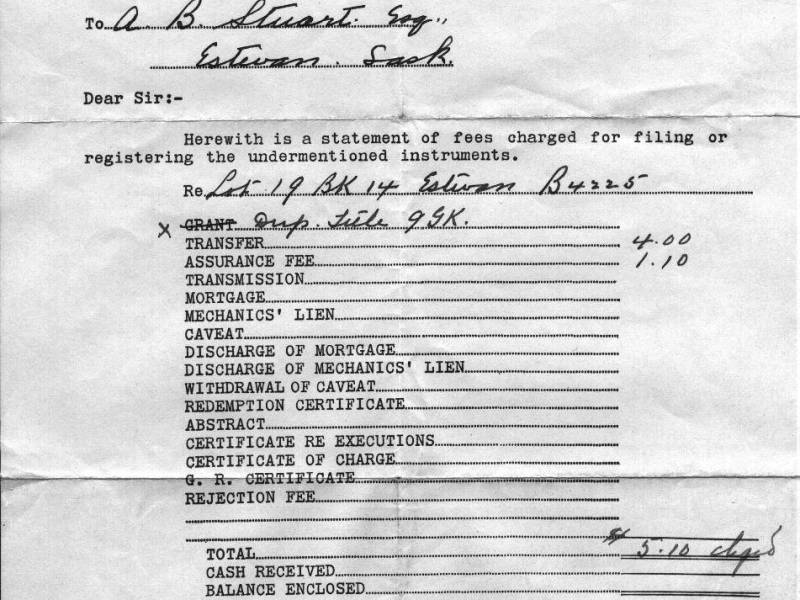 To A. B. Stuart. Esq.,
Estevan. Sask.
Dear Sir:-
Herewith is a statement of fees charged for filing or
registering the undermentioned instruments.
Re Lot 19 BK 14 Estevan B4225
x GRANT Dup. Title 9GK.
TRANSFER 4.00
ASSURANCE FEE 1.10
TRANSMISSION
MORTGAGE
MECHANICS' LIEN
CAVEAT
DISCHARGE OF MORTGAGE
DISCHARGE OF MECHANICS' LIEN
WITHDRAWAL OF CAVEAT
REDEMPTION CERTIFICATE
ABSTRACT
CERTIFICATE RE EXECUTIONS
CERTIFICATE OF CHARGE
G. R. CERTIFICATE
REJECTION FEE
TOTAL $ 5.10 chged
CASH RECEIVED
BALANCE ENCLOSED